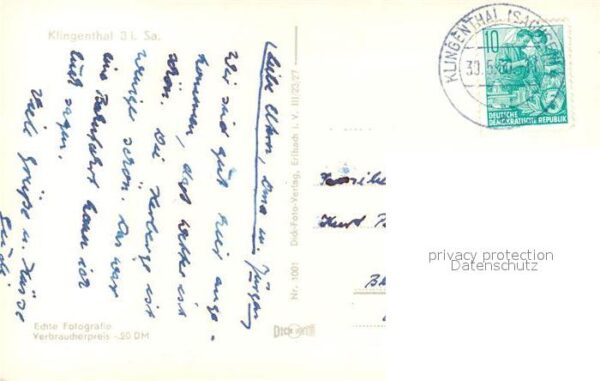 Klingenthal 3 i. Sa.
Liebe Eltern, Oma u. Jürgen
Wir sind gut hier ange-
kommen, das Wetter ist
schön. Die Herberge ist
weniger schön. Das war
eine Bahnfahrt kann ich
Euch sagen.
Viele Grüße u. Küsse
Echte Fotografie
Verbraucherpreis -.20 DM
Nr. 1001 Dick-Foto-Verlag, Erlbach i. V. III/23/27
DICK
KLINGENTHAL (SACHS
10
DEUTSCHE
DEMOKRATISCHE REPUBLIK
Familie
Kurt
privacy protection
Datenschutz